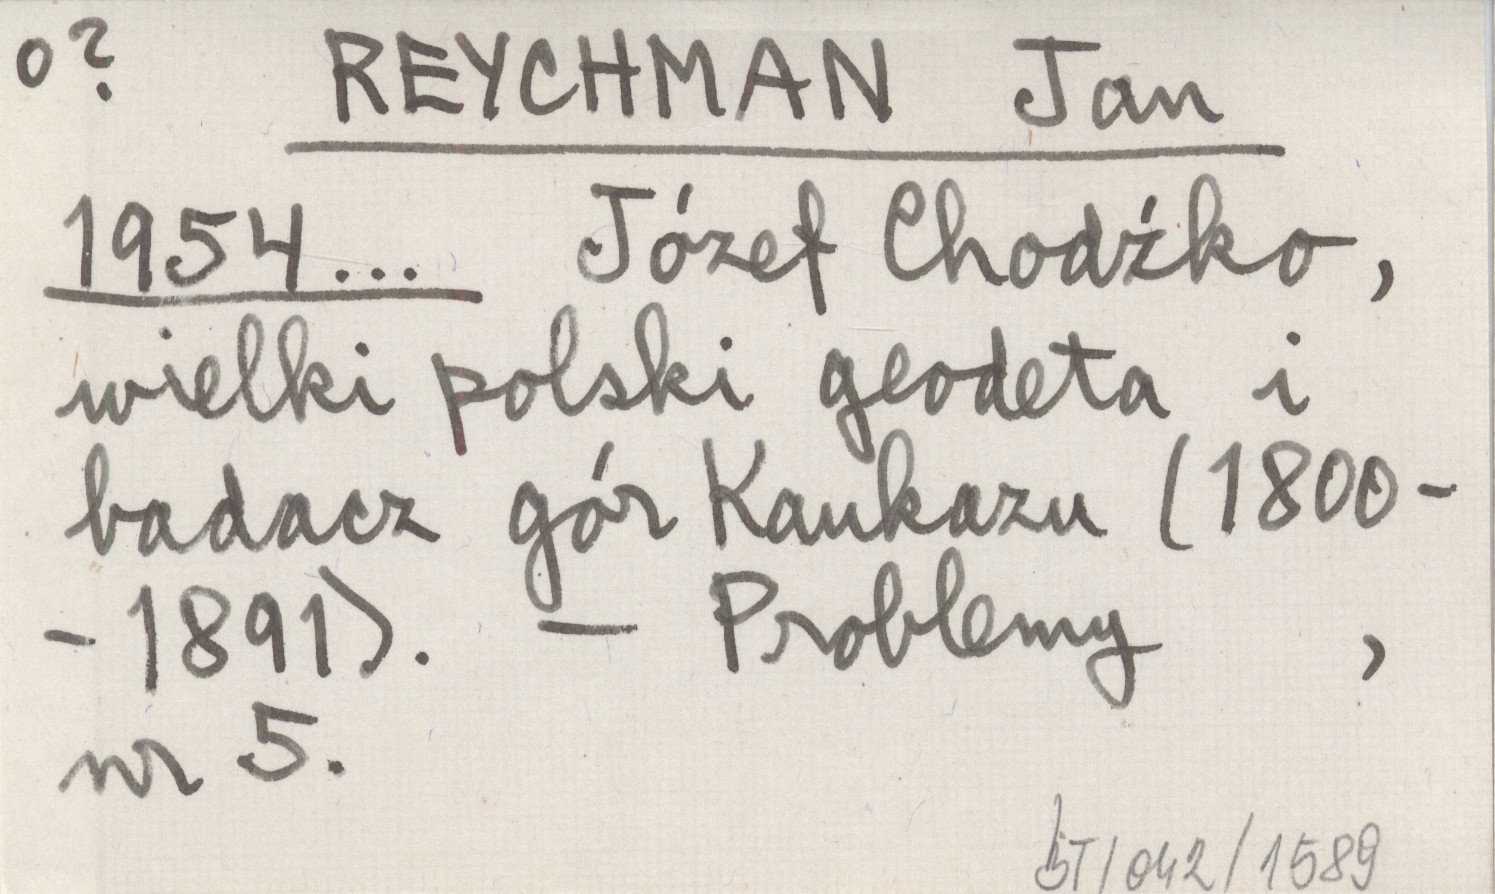 o? REYCHMAN Jan
1954... Józef Chodźko,
wielki polski geodeta i
badacz gór Kaukazu (1800-
-1891). - Problemy ,
nr 5.
ST/042/1589